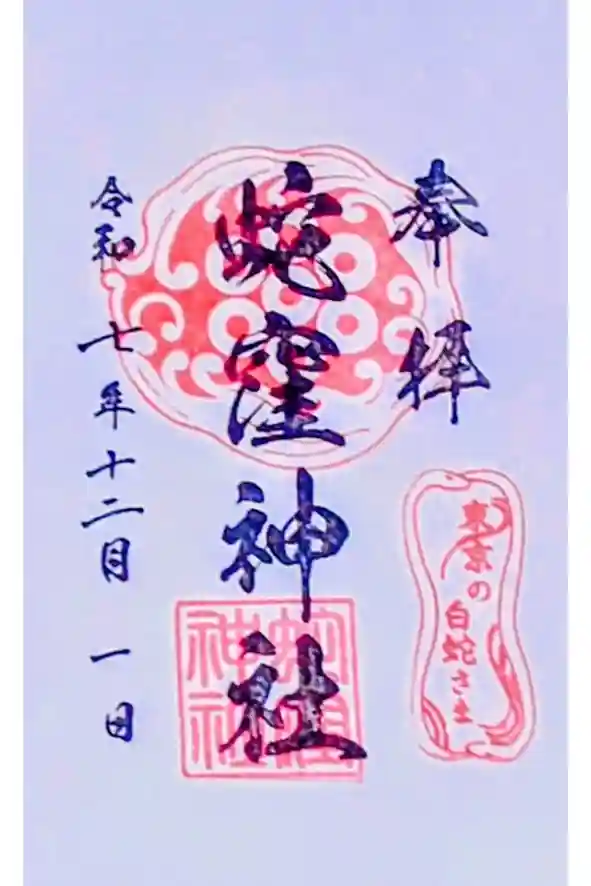 奉拝
蛇窪神社
令和七年十二月一日
東京の
白蛇さま
蛇窪
神社